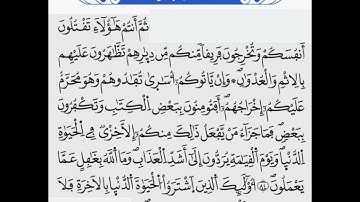 ثُمَّ أَنتُمْ هَٰؤُلَآءِ تَقْتُلُونَ
أَنفُسَكُمْ وَتُخْرِجُونَ فَرِيقاً مِّنكُم مِّن دِيَٰرِهِمْ تَظَّٰهَرُونَ عَلَيْهِم
بِالِاثْمِ وَالْعُدْوَٰنِ وَإِنْ يَّاتُوكُمُۥٓ أُسَٰرَىٰ تُفَٰدُوهُمْ وَهُوَ مُحَرَّمٌ
عَلَيْكُمُۥٓ إِخْرَاجُهُمُۥٓ أَفَتُومِنُونَ بِبَعْضِ الْكِتَٰبِ وَتَكْفُرُونَ
بِبَعْضٍ فَمَا جَزَآءُ مَنْ يَّفْعَلُ ذَٰلِكَ مِنكُمُۥٓ إِلَّا خِزْيٌ فِي الْحَيَوٰةِ
الدُّنْيَا وَيَوْمَ الْقِيَٰمَةِ يُرَدُّونَ إِلَىٰٓ أَشَدِّ الْعَذَابِ وَمَا اللَّهُ بِغَٰفِلٍ عَمَّا
يَعْمَلُونَ أُوْلَٰٓئِكَ الَّذِينَ اَشْتَرَوُاْ الْحَيَوٰةَ الدُّنْيَا بِالَاخِرَةِ فَلَا